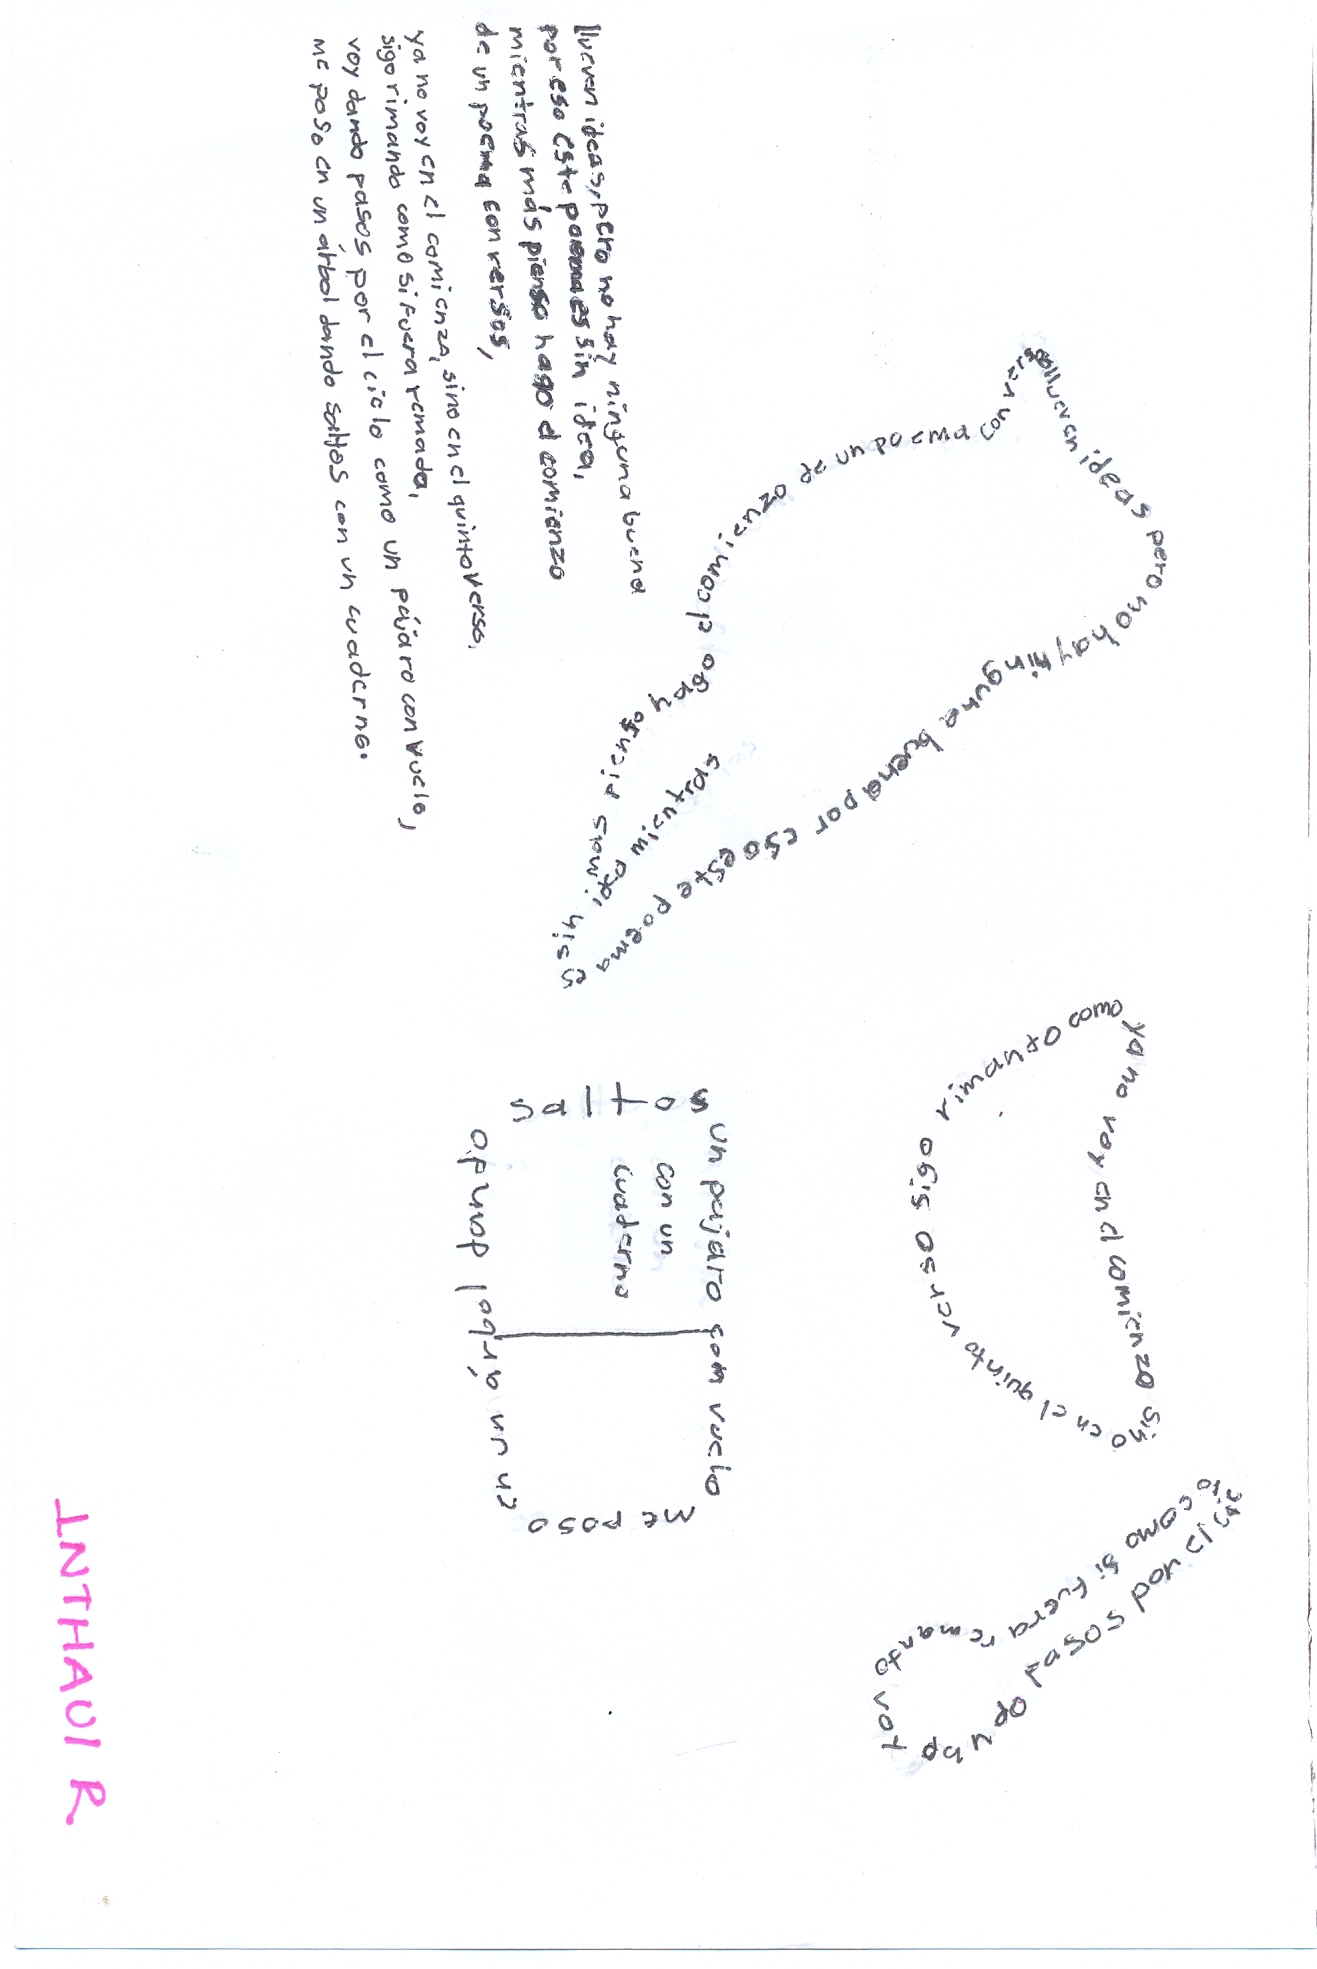 llueven ideas, pero no hay ninguna buena
por eso este poema es sin idea,
mientras más pienso hago el comienzo
de un poema con versos,
ya no voy en el comienzo, sino en el quinto verso,
sigo rimando como si fuera remada,
voy dando pasos por el cielo como un pájaro con vuelo,
me poso en un árbol dando saltos con un cuaderno.
llueven ideas pero no hay ninguna buena por eso este poema es sin idea mientras más pienso hago el comienzo de un poema con versos
ya no voy en el comienzo sino en el quinto verso sigo rimando como
si fuera remando voy dando pasos por el cielo como
un pájaro con vuelo
me poso
en un árbol dando
saltos
con un
cuaderno
INTHAUI R.